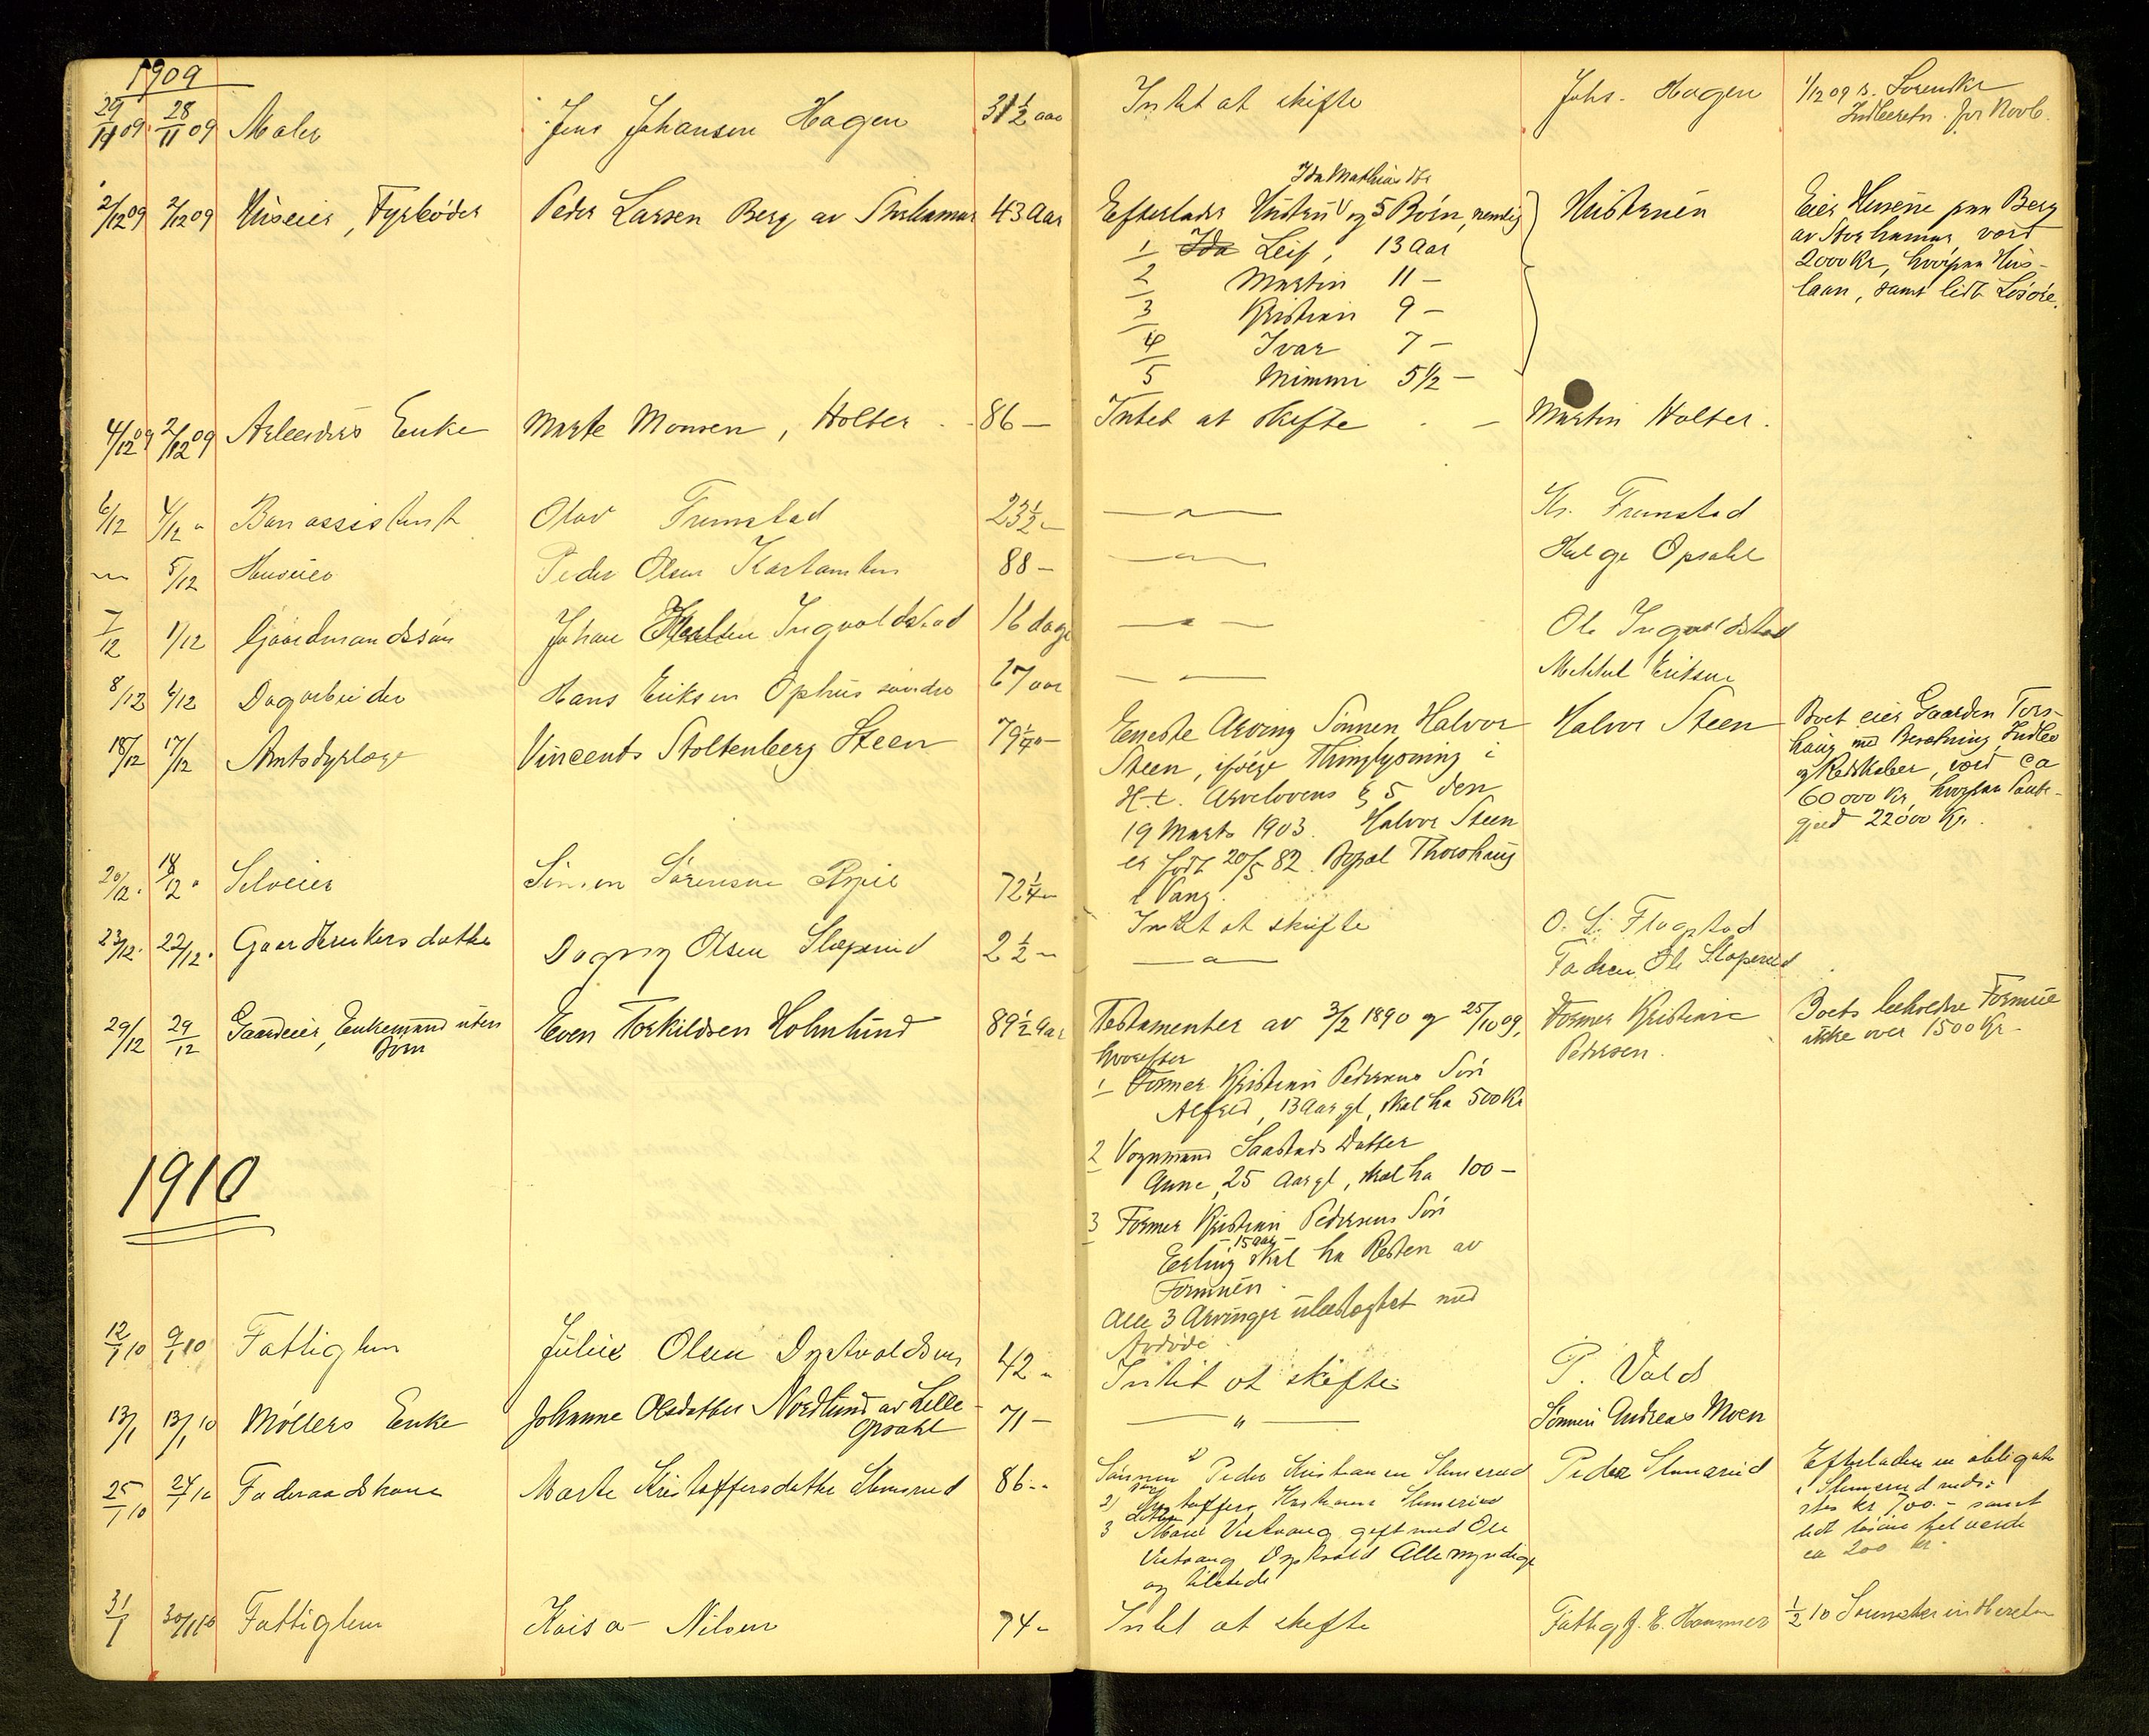 1909
29/11 09 28/11 09 Maler Jens Johansen Hagen 31 1/2 aar Intet at skifte Johs. Hagen 1/12 09 s. Sorenskr
Indberetn. for Novb.
2/12 09 2/12 09 Huseier, Fyrbøder Peder Larsen Berg av Storhamar 43 Aar Efterlader Hustru Ida Mathisdtr og 5 Børn, nemlig Hustruen Eier Husene paa Berg
1 Ida Leif, 13 Aar av Storhamar, værd
2 Martin 11 — 2000 Kr, hvorpaa Hus-
3 Kristian 9 — laan, samt lidt Løsøre.
4 Ivar 7 —
5 Mimmi 5 1/2 —
4/12 09 2/12 09 Arbeiders Enke Marte Monsen, Holter 86 — Intet at skifte — Martin Holter.
6/12 4/12 " Banassistent Olav Frenstad 23 1/2 " — " — Kr. Frenstad
— " 5/12 Huseier Peder Olsen 88 — — " — Helge Opsahl
7/12 1/12 Gaardmandssøn Johan Ingvoldstad 16 dage — " — Ole Ingvoldstad
8/12 6/12 Dagarbeider Hans Eriksen Ophus søndre 67 aar — — Eriksen
18/12 17/12 Amtsdyrlæge Vincents Stoltenberg Steen 79 — Eneste Arving Sønnen Halvor Halvor Steen Boet eier Gaarden Tors-
Steen, ifølge Thinglysning i haug med Besætning, Indbo
H. t. Arvelovens § 5 den og Redskaber, værd ca
19 Marts 1903. Halvor Steen 60 000 Kr, hvorpaa Pante-
er født 20/5 82. Bopæl Thorshaug gjæld 22000 Kr.
i Vang.
20/12 18/12 " Selveier Simen Sørensen 72 1/4 " Intet at skifte O. S. Flagstad
23/12 22/12 Gaardbrukersdatter Dagny Olsen Slaperud 2 1/2 " — " — Faderen Ole Slaperud
29/12 29/12 Gaardeier, Enkemand uten Even Torkildsen Holmlund 89 1/2 Aar Testamenter av 3/2 1890 og 25/10 09, Former Kristian Boets beholdne Formue
Børn hvorefter Pedersen. ikke over 1500 Kr.
1 Former Kristian Pedersens Søn
Alfred, 13 Aar gl, skal ha 500 Kr
2 Vognmand Saastads Datter
Anne, 25 Aar gl, skal ha 100 —
3 Former Kristian Pedersens Søn
— 15 Aar —
Erling skal ha Resten av
Formuen.
Alle 3 Arvinger ubeslægtet med
Avdøde.
1910
12/1 10 9/1 10 Fattiglem Julie Olsen Dystvoldsen 42 " Intet at skifte P. Vold
13/1 13/1 10 Møllers Enke Johanne Olsdatter Nordlund av Lille- 71 — — " — Sønnen Andreas Moen
Opsahl
25/1 10 24/1 10 Føderaadskone Marte Kristoffersdatter Slemsrud 86 " 1) Sønnen Peder Kristiansen Slemsrud Peder Slemsrud Efterlader en obligation
2) søn Kristoffer Kristiansen Slemsrud i Slemsrud
3 datter Marie gift med Ole kr 700.- samt
Dystvold Alle myndige lidt løsøre til værdi
og tilstede ca 200 kr.
31/1 30/1 10 Fattiglem Kaisa Nilsen 74 " Intet at skifte Fattigf. E. Hammer 1/2 10 Sorenskr. indberetn